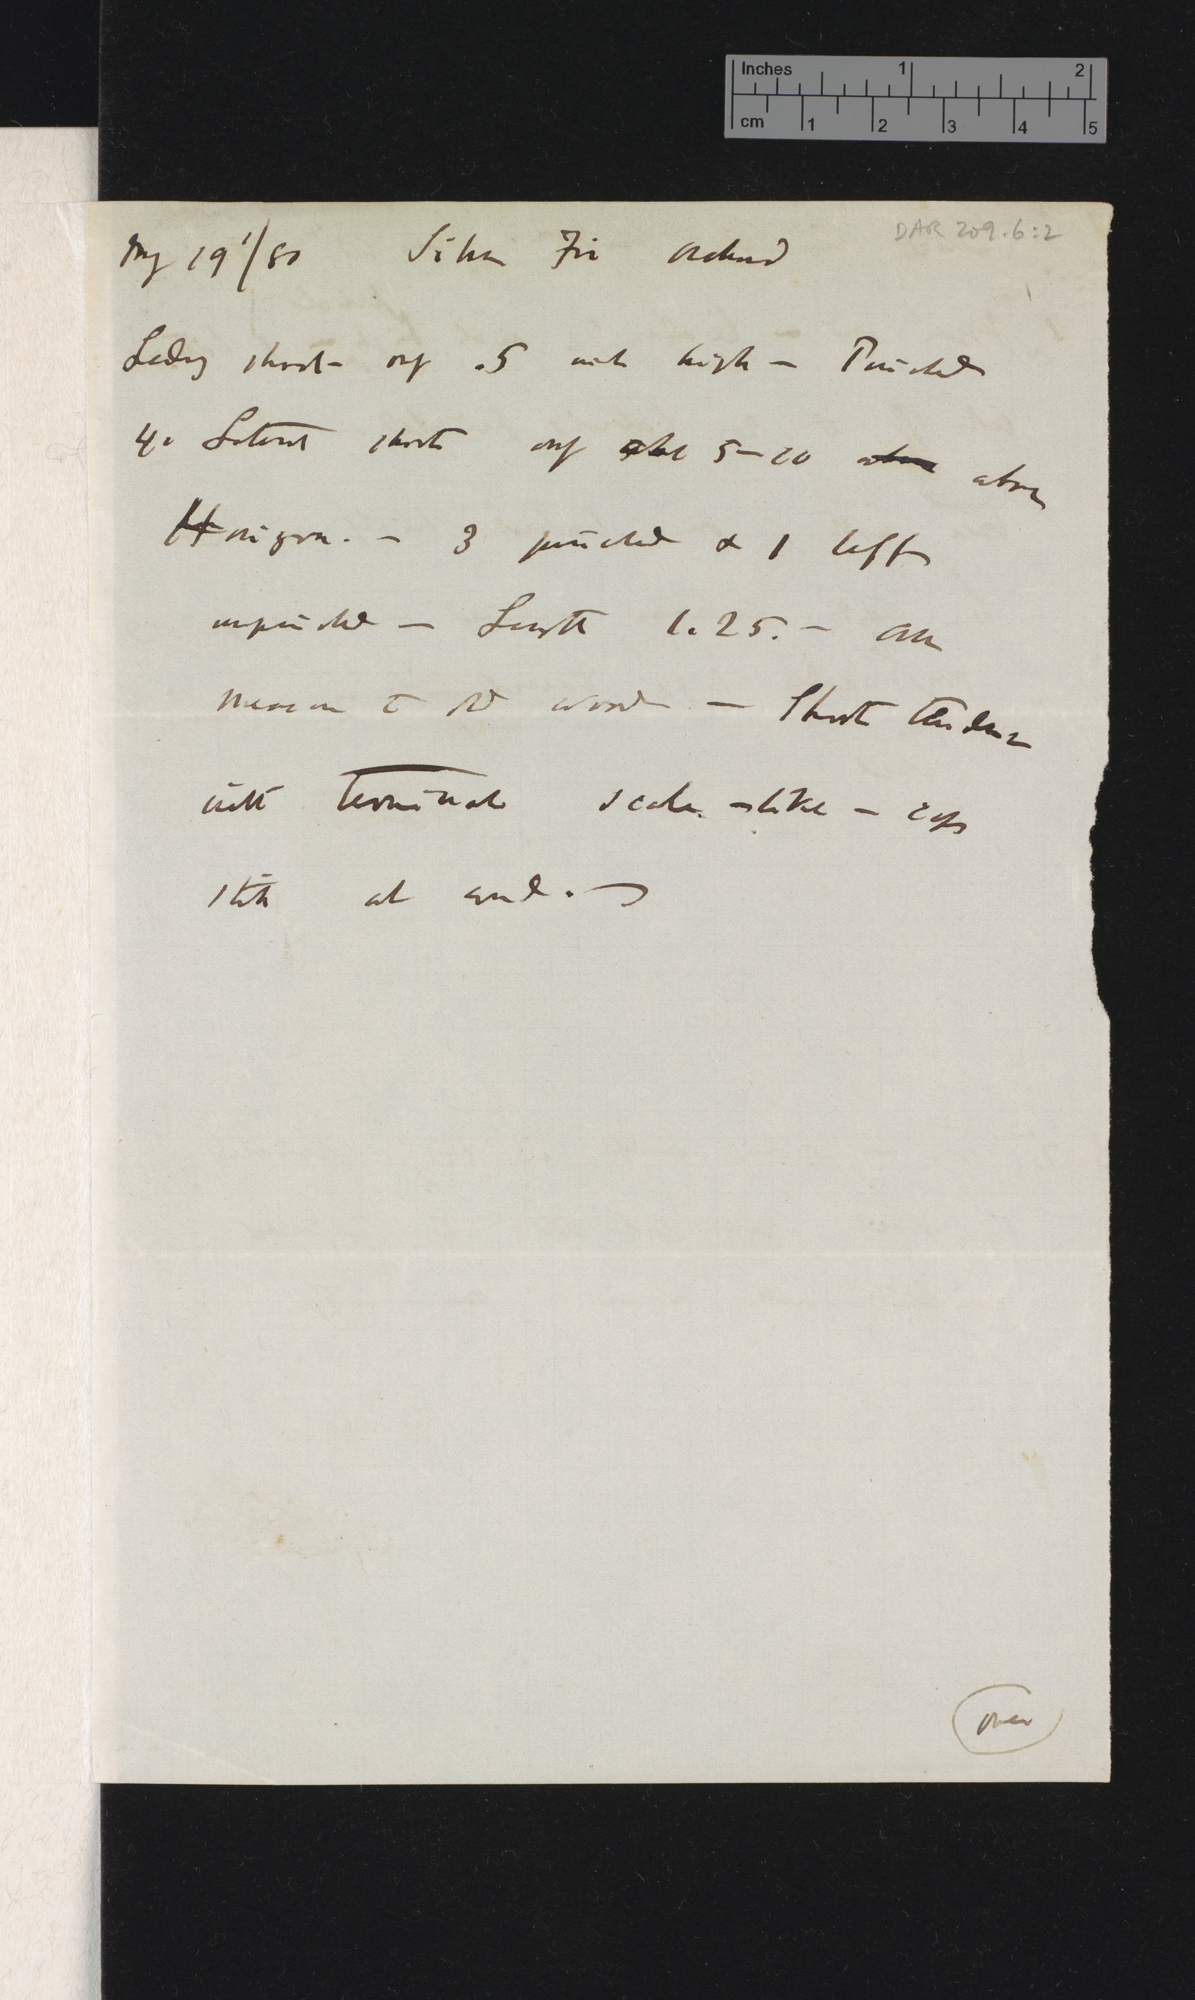 Inches 1 2
cm 1 2 3 4 5
DAR 209.6:2
May 19'/80 Silver Fir Orchard
Leading shoot only .5 inch high — Pinched
4. Lateral shoots only 5–20 above
Horizon. — 3 pinched & 1 left
unpinched — Length 1.25. — All
measure to old wood — Shoots tender
with terminal scale-like — cap
still at end. —
over